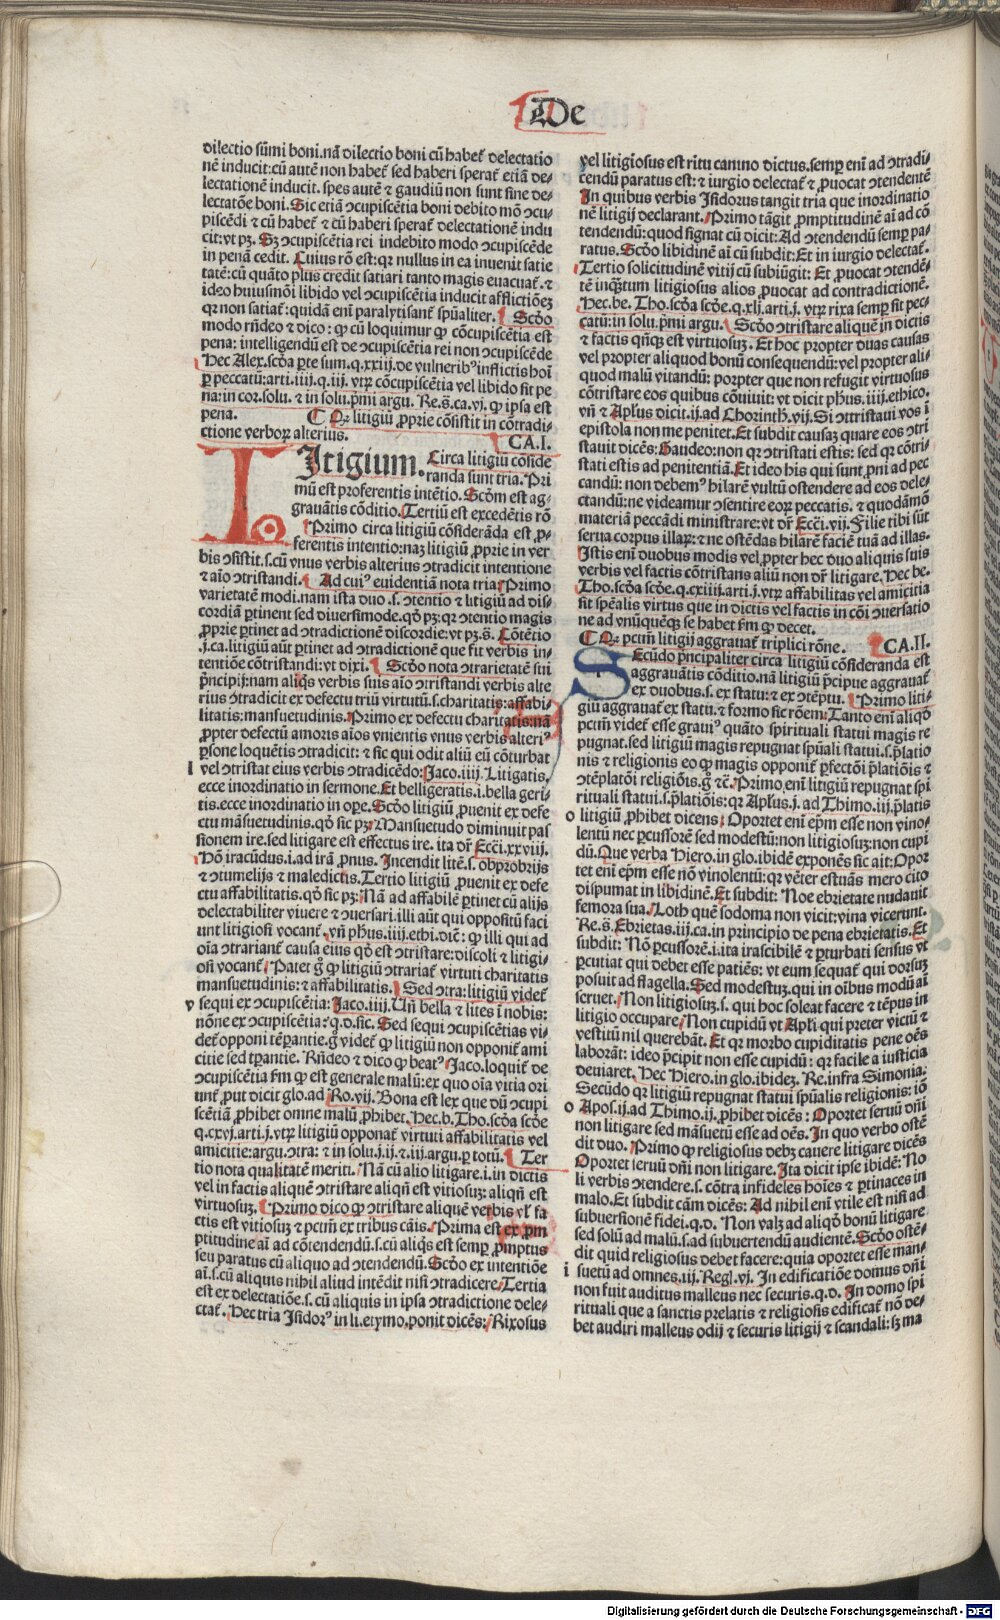 De
dilectio sūmi boni.nā dilectio boni cū habet̄ delectatio
nē inducit:cū autē non habet̄ sed haberi sperat̄ etiā de⸗
lectationē inducit. spes autē ⁊ gaudiū non sunt sine de⸗
lectatōe boni. Sic etiā ꝯcupiscētia boni debito mō ꝯcu⸗
piscēdi ⁊ cū habet̄ ⁊ cū haberi sperat̄ delectationē indu
cit:vt pꝫ. Sꝫ ꝯcupiscētia rei indebito modo ꝯcupiscēde
in penā cedit. Cuius rō est:qꝛ nullus in ea inuenit satie
tatē:cū quāto plus credit satiari tanto magis euacuat̄.⁊
ideo huiusmōi libido vel ꝯcupiscētia inducit afflictiōeꝫ
qꝛ non satiat̄:quidā enī paralytisant̄ spūaliter. Scd̄o
modo rn̄deo ⁊ dico: ꝙ cū loquimur ꝙ cōcupiscētia est
pena: intelligendū est de ꝯcupiscētia rei non ꝯcupiscēde
Hec Alex.scd̄a ꝑte sum.q.xxiij.de vulneribꝰ inflictis hoī
ꝑ peccatū:arti.iiij.q.iij. vtꝝ cōcupiscētia vel libido sit pe
na:in cor.solu. ⁊ in solu.p̄mi argu. Re.s̄.ca.vj. ꝙ ipsa est
pena. C Qꝛ litigiū ꝓprie cōsistit in cōtradi⸗
ctione verboꝝ alterius. CA.I.
LItigium. Circa litigiū cōside
randa sunt tria. Pri
mū est proferentis intētio. Scd̄m est ag⸗
grauātis cōditio. Tertiū est excedētis rō
Primo circa litigiū cōsiderāda est ꝓ⸗
ferentis intentio:naꝫ litigiū ꝓprie in ver
bis ꝯsistit.s.cū vnus verbis alterius ꝯtradicit intentione
⁊ aīo ꝯtristandi. Ad cuiꝰ euidentiā nota tria. Primo
varietatē modi.nam ista duo.s. ꝯtentio ⁊ litigiū ad dis⸗
cordiā ꝑtinent sed diuersimode.qd̄ pꝫ:qꝛ ꝯtentio magis
ꝓprie ꝑtinet ad ꝯtradictionē discordie:vt pꝫ.s̄. Cōtētio
.j.ca.litigiū aūt ꝑtinet ad ꝯtradictionē que fit verbis in⸗
tentiōe cōtristandi:vt dixi. Scd̄o nota ꝯtrarietatē sui
p̄ncipij:nam aliq̄s verbis suis aīo ꝯtristandi verbis alte
rius ꝯtradicit ex defectu triū virtutū.s.charitatis:affabi⸗
litatis:mansuetudinis. Primo ex defectu charitatis:nā
ꝓpter defectū amoris aīos vnientis vnus verbis alteriꝰ
ꝑsone loquētis ꝯtradicit: ⁊ sic qui odit aliū eū cōturbat
l vel ꝯtristat eius verbis ꝯtradicēdo: Jaco.iiij. Litigatis.
ecce inordinatio in sermone. Et belligeratis.i.bella geri⸗
tis.ecce inordinatio in oꝑe. Scd̄o litigiū ꝓuenit ex defe
ctu māsuetudinis.qd̄ sic pꝫ: Mansuetudo diminuit pas
sionem ire.sed litigare est effectus ire. ita dr̄ Ecc̄i.xxviij.
Hō iracūdus.i.ad irā ꝓnus. Incendit litē.s. obprobrijs
⁊ ꝯtumelijs ⁊ maledictis. Tertio litigiū ꝓuenit ex defe
ctu affabilitatis.qd̄ sic pꝫ: Nā ad affabilē ꝑtinet cū alijs
delectabiliter viuere ⁊ ꝯuersari.illi aūt qui oppositū faci
unt litigiosi vocant̄. vn̄ phūs.iiij.ethi.dic̄: ꝙ illi qui ad
oīa ꝯtrariant̄ causa eius qd̄ est ꝯtristare:discoli ⁊ litigi⸗
osi vocant̄. Patet g̊ ꝙ litigiū ꝯtrariat̄ virtuti charitatis
mansuetudinis: ⁊ affabilitatis. Sed ꝯtra:litigiū videt̄
v sequi ex ꝯcupiscētia: Jaco.iiij. Un̄ bella ⁊ lites ī nobis:
nōne ex ꝯcupiscētia:q.d.sic. Sed sequi ꝯcupiscētias vi⸗
det̄ opponi tēꝑantie.g̊ videt̄ ꝙ litigiū non opponit̄ ami
citie sed tꝑantie. Rn̄deo ⁊ dico ꝙ beatꝰ Jaco.loquit̄ de
ꝯcupiscētia ẜm ꝙ est generale malū:ex quo oīa vitia ori
unt̄ ꝓut dicit glo.ad Ro.vij. Bona est lex que dū ꝯcupi
scētiā ꝓhibet omne malū ꝓhibet. Hec.b. Tho.scd̄a scd̄e
q.cxvj.arti.j.vtꝝ litigiū opponat̄ virtuti affabilitatis vel
amicitie:argu.ꝯtra: ⁊ in solu.j.ij.⁊.iij.argu.ꝑ totū. Ter
tio nota qualitatē meriti. Nā cū alio litigare.i.in dictis
vel in factis aliquē ꝯtristare aliqn̄ est vitiosuꝫ:aliqn̄ est
virtuosuꝫ. Primo dico ꝙ ꝯtristare aliquē verbis vl̄ fa
ctis est vitiosuꝫ ⁊ pctm̄ ex tribus cāis. Prima est ex ꝓm
ptitudine aī ad cōtendendū.s.cū aliq̄s est semꝑ ꝓmptus
seu paratus cū aliquo ad ꝯtendendū. Scd̄o ex intentiōe
aī.s.cū aliquis nihil aliud intēdit nisi ꝯtradicere. Tertia
est ex delectatiōe.s.cū aliquis in ipsa ꝯtradictione dele⸗
ctat̄. Hec tria Isidoꝰ in li.etymo.ponit dicēs: Rixosus
vel litigiosus est ritu canino dictus.semꝑ enī ad ꝯtradi⸗
cendū paratus est: ⁊ iurgio delectat̄ ⁊ ꝓuocat ꝯtendentē
In quibus verbis Isidorus tangit tria que inordinatio
nē litigij declarant. Primo tāgit ꝓmptitudinē aī ad cō
tendendū:quod signat cū dicit: Ad ꝯtendendū semꝑ pa⸗
ratus. Scd̄o libidinē aī cū subdit: Et in iurgio delectat̄.
Tertio solicitudinē vitij cū subiūgit: Et ꝓuocat ꝯtendē⸗
tē inqͣtum litigiosus alios ꝓuocat ad contradictionē.
Hec.be. Tho.scd̄a scd̄e.q.xlj.arti.j. vtꝝ rixa semꝑ sit pec⸗
catū:in solu.p̄mi argu. Scd̄o ꝯtristare aliquē in dictis
⁊ factis qn̄qꝫ est virtuosuꝫ. Et hoc propter duas causas
vel propter aliquod bonū consequendū:vel propter ali⸗
quod malū vitandū: propter que non refugit virtuosus
cōtristare eos quibus cōuiuit: vt dicit phūs.iiij.ethico.
vn̄ ⁊ Apl̄us dicit.ij.ad Chorinth.vij. Si ꝯtristaui vos ī
epistola non me penitet. Et subdit causaꝫ quare eos ꝯtri
stauit dicēs: Gaudeo:non qꝛ ꝯtristati estis: sed qꝛ cōtri⸗
stati estis ad penitentiā. Et ideo his qui sunt ꝓni ad pec
candū: non debemꝰ hilarē vultū ostendere ad eos dele⸗
ctandū:ne videamur ꝯsentire eoꝝ peccatis. ⁊ quodāmō
materiā peccādi ministrare: vt dr̄ Ecc̄i.vij. Filie tibi sūt
serua corpus illaꝝ: ⁊ ne ostēdas hilarē faciē tuā ad illas.
Istis enī duobus modis vel ꝓpter hec duo aliquis suis
verbis vel factis cōtristans aliū non dr̄ litigare. Hec be.
Tho.scd̄a scd̄e.q.cxiiij.arti.j. vtꝝ affabilitas vel amicitia
sit spēalis virtus que in dictis vel factis in cōi ꝯuersatio
ne ad vnūquēqꝫ se habet ẜm ꝙ decet.
C Qꝛ pctm̄ litigij aggrauat̄ triplici rōne. CA.II.
SEcūdo p̄ncipaliter circa litigiū cōsideranda est
aggrauātis cōditio.nā litigiū p̄cipue aggrauat̄
ex duobus.s. ex statu: ⁊ ex ꝯtēptu. Primo liti⸗
giū aggrauat̄ ex statu. ⁊ formo sic rōem: Tanto enī aliqd̄
pctm̄ videt̄ esse grauiꝰ quāto spirituali statui magis re
pugnat.sed litigiū magis repugnat spūali statui.s.p̄latio
nis ⁊ religionis eo ꝙ magis opponit̄ ꝑfectōi p̄latiōis ⁊
ꝯtēplatōi religiōis.g̊ ⁊c̄. Primo enī litigiū repugnat spi
rituali statui.s.p̄latiōis:qꝛ Apl̄us.j. ad Thimo.iij.p̄latis
o litigiū ꝓhibet dicens: Oportet enī ep̄m esse non vino⸗
lentū nec ꝑcussorē sed modestū:non litigiosuꝫ:non cupi
dū. Que verba Hiero.in glo.ibidē exponēs sic ait: Opor
tet enī ep̄m esse nō vinolentū: qꝛ vēter estuās mero cito
dispumat in libidinē. Et subdit: Noe ebrietate nudauit
femora sua. Loth quē sodoma non vicit:vina vicerunt.
Re.s̄. Ebrietas.iij.ca.in principio de pena ebrietatis. Et
subdit: Nō ꝑcussorē.i.ita irascibilē ⁊ ꝑturbati sensus vt
ꝑcutiat qui debet esse patiēs: vt eum sequat̄ qui dorsuꝫ
posuit ad flagella. Sed modestuꝫ.qui in oībus modū aī
seruet. Non litigiosuꝫ.s. qui hoc soleat facere ⁊ tēpus in
litigio occupare. Non cupidū vt Apl̄i qui preter victū ⁊
vestitū nil querebāt. Et qꝛ morbo cupiditatis pene oēs
laborāt: ideo p̄cipit non esse cupidū: qꝛ facile a iusticia
deuiaret. Hec Hiero.in glo.ibideꝫ. Re.infra Simonia.
Secūdo qꝛ litigiū repugnat statui spūalis religionis: iō
o Apos.ij.ad Thimo.ij.ꝓhibet dicēs: Oportet seruū dn̄i
non litigare sed māsuetū esse ad oēs. In quo verbo ostē
dit duo. Primo ꝙ religiosus debꝫ cauere litigare dicēs
Oportet seruū dn̄i non litigare. Ita dicit ipse ibidē: No
li verbis ꝯtendere.s. cōtra infideles hoīes ⁊ ꝑtinaces in
malo. Et subdit cām dicēs: Ad nihil enī vtile est nisi ad
subuersionē fidei.q.d. Non valꝫ ad aliqd̄ bonū litigare
sed solū ad malū.s.ad subuertendū audientē. Scd̄o ostē⸗
dit quid religiosus debet facere:quia oportet esse man⸗
i suetū ad omnes.iij. Regl̄.vj. In edificatiōe domus dn̄i
non fuit auditus malleus nec securis.q.d. In domo spi
rituali que a sanctis prelatis ⁊ religiosis edificat̄ nō de⸗
bet audiri malleus odij ⁊ securis litigij ⁊ scandali: sꝫ ma
Digitalisierung gefördert durch die Deutsche Forschungsgemeinschaft - DFG